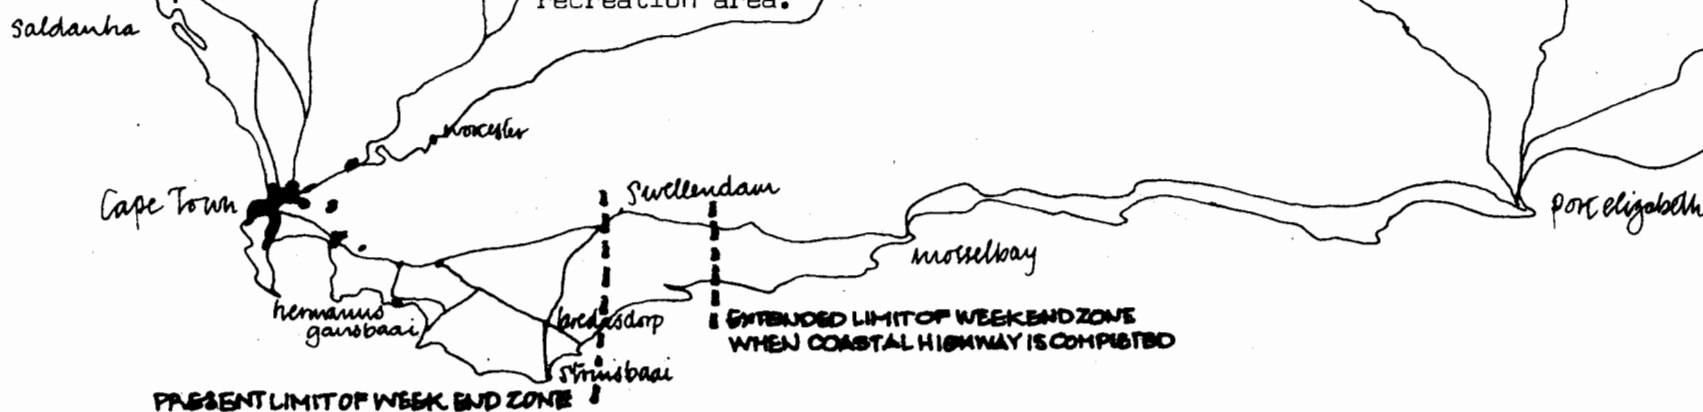 recreation area.
saldanha
worcester
Cape Town
swellendam
port elizabeth
mosselbay
hermanus
gansbaai
bredasdorp
EXTENDED LIMIT OF WEEKEND ZONE
WHEN COASTAL HIGHWAY IS COMPLETED
struisbaai
PRESENT LIMIT OF WEEK END ZONE